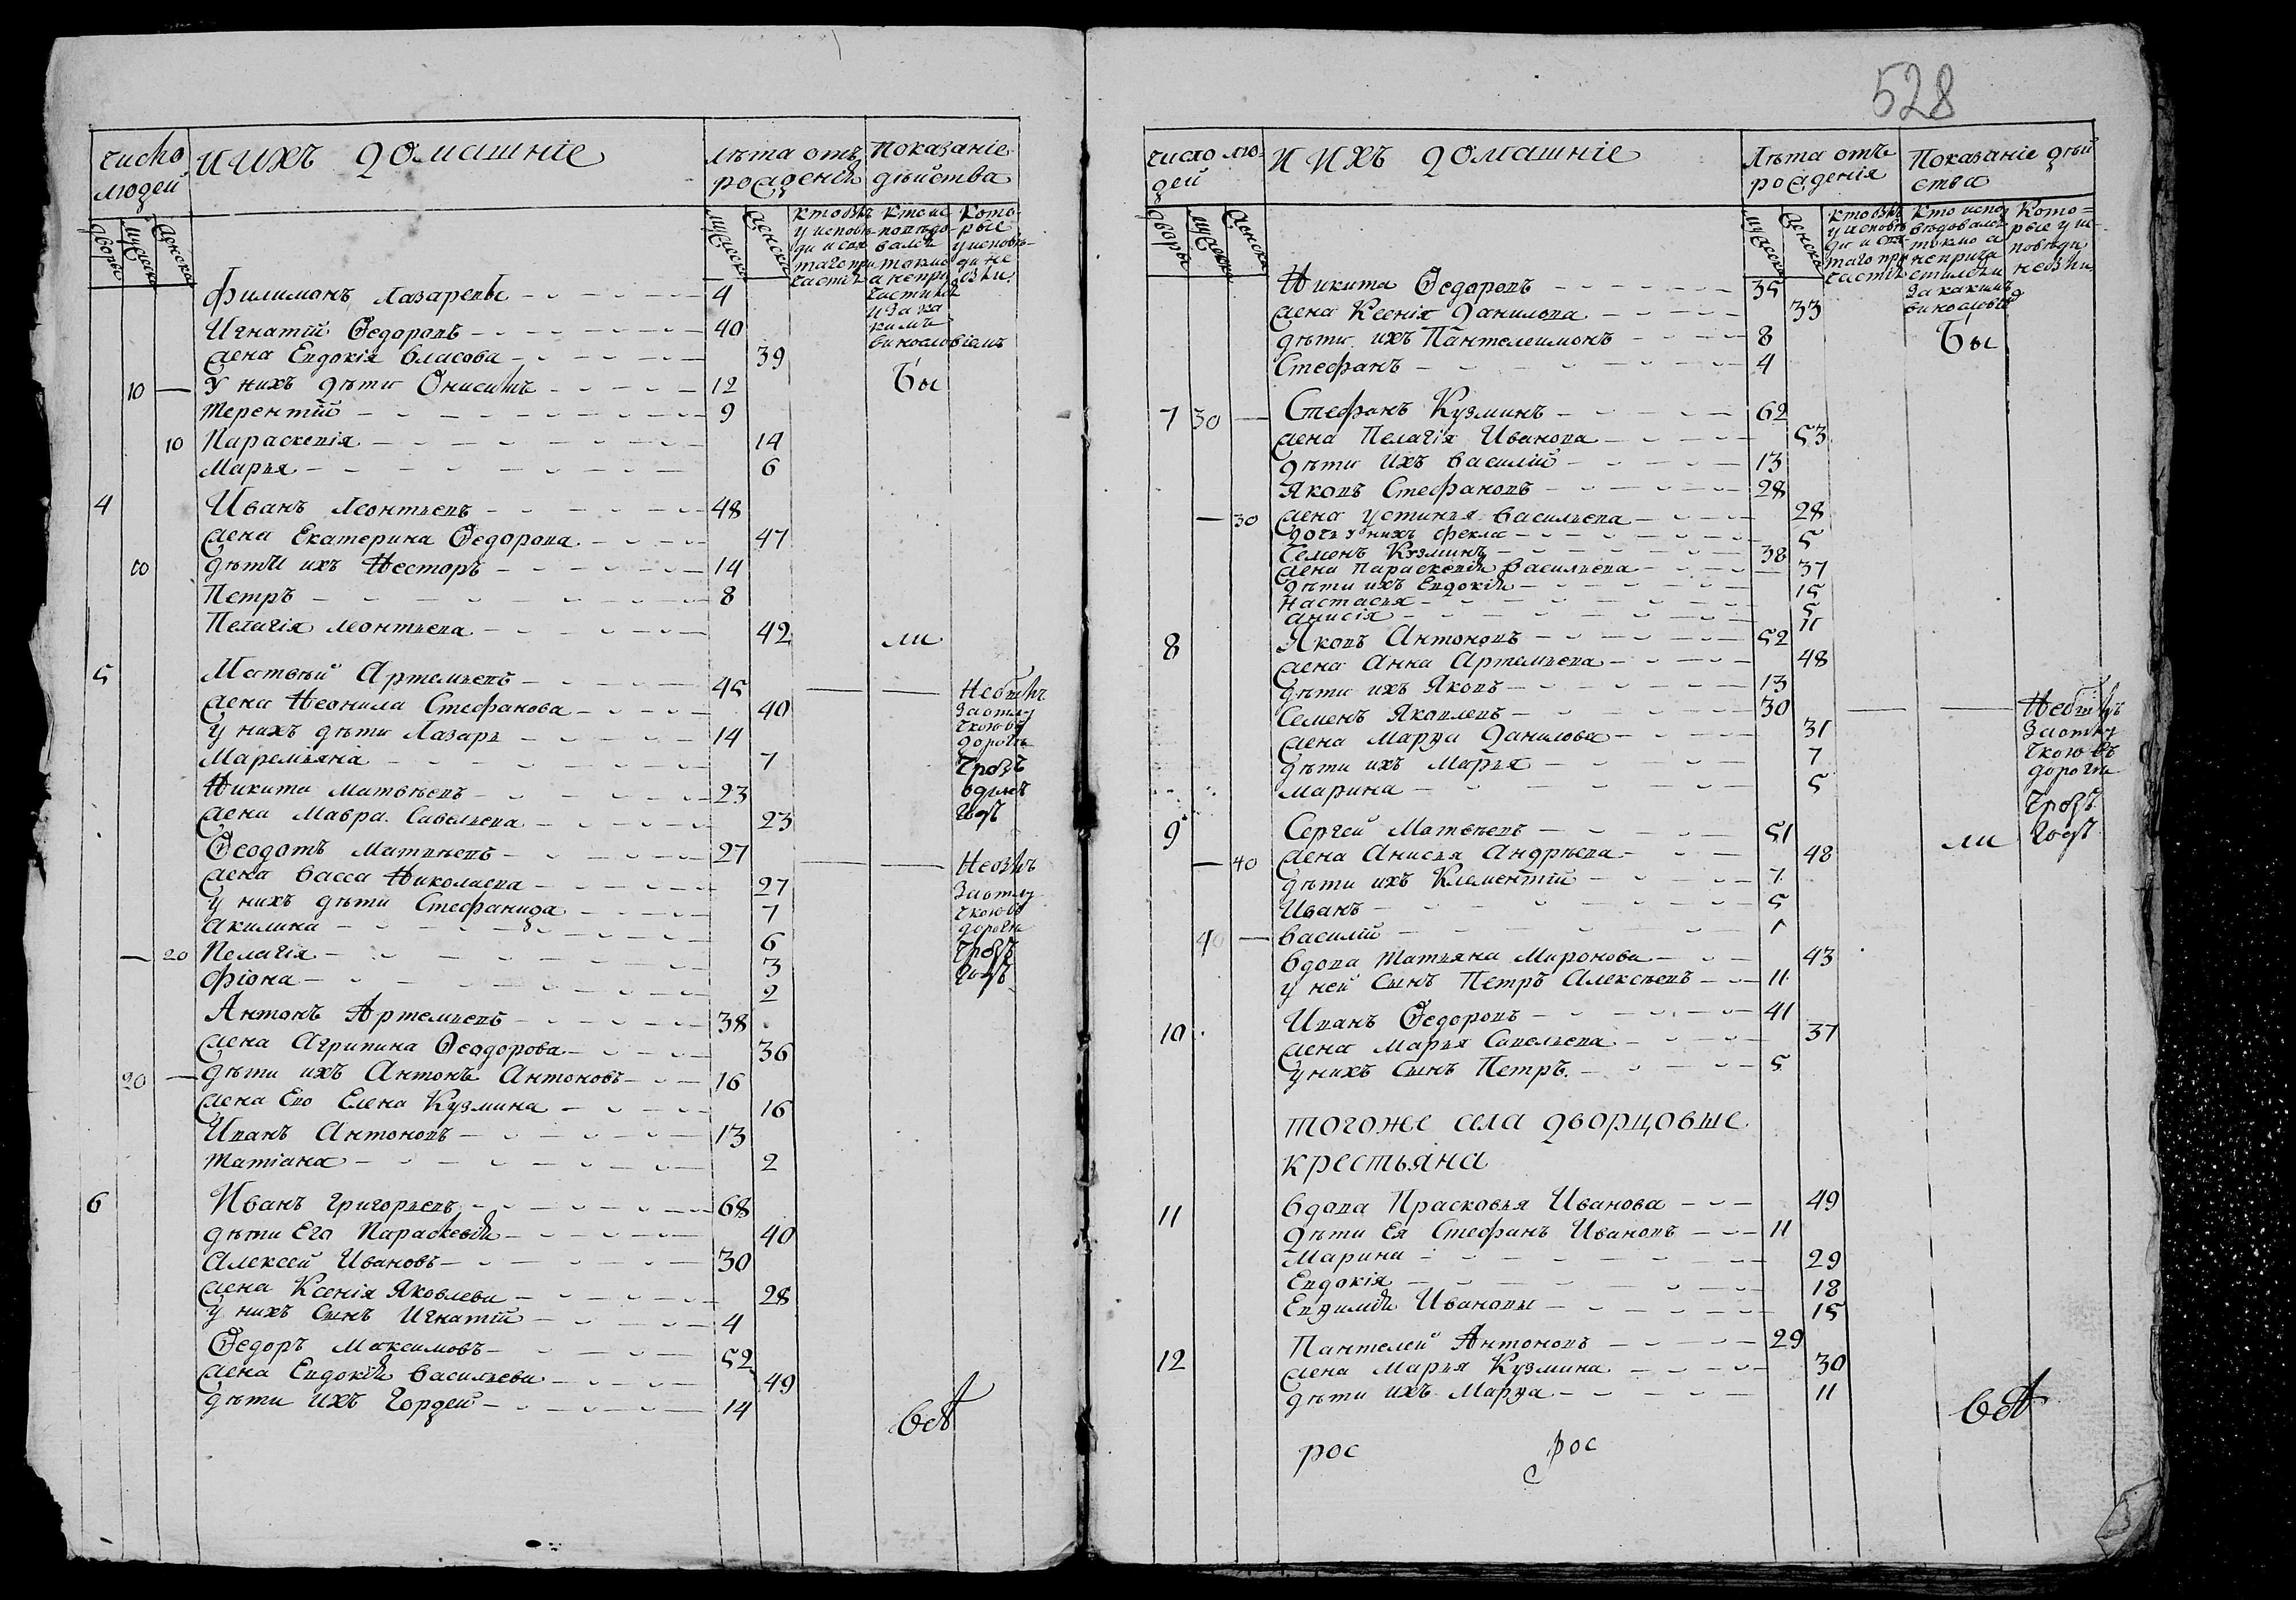 528
число людей
и ихъ домашніе
лѣта отъ рожденія
Показаніе дѣйства
дворы
мужеска
женска
мужеска
женска
Филимонъ Лазаревы 4
Игнатій Ѳедоровъ 40
жена Евдокія Власова 39
10 — У нихъ дѣти Онисимъ 12
Терентій 9
10 Параскевія 14
Марья 6
Бы
4 Иванъ Леонтьевъ 48
жена Екатерина Ѳедорова 47
дѣти ихъ Несторъ 14
Петръ 8
Пелагія Леонтьева 42
ли
5 Матвѣй Артемьевъ 45
жена Неонила Стефанова 40
У нихъ дѣти Лазарь 14
Маремьяна 7
Никита Матвѣевъ 23
жена Мавра Савельева 23
Ѳеодотъ Матвѣевъ 27
жена Васса Николаева 27
у нихъ дѣти Стефанида 7
Акилина 6
— 20 Пелагія 3
Фіона 2
Антонъ Артемьевъ 38
жена Агрипина Ѳеодорова 36
20 — дѣти ихъ Антонъ Антоновъ 16
жена Его Елена Кузмина 16
Иванъ Антоновъ 13
Татіана 2
6 Иванъ Григорьевъ 68
дѣти Его Параскевія 40
Алексей Ивановъ 30
жена Ксенія Яковлева 28
у нихъ Сынъ Игнатій 4
Ѳедоръ Максимовъ 52
жена Евдокія Васильева 49
дѣти ихъ Гордей 14
всѣ
число людей
и ихъ домашніе
Лѣта отъ рожденія
Показаніе дѣйства
дворы
мужеска
женска
мужеска
женска
Никита Ѳедоровъ 35
жена Ксенія Данилова 33
дѣти ихъ Пантелеимонъ 8
Стефанъ 4
Бы
7 30 — Стефанъ Кузминъ 62
жена Пелагія Иванова 53
дѣти ихъ Василій 13
Яковъ Стефановъ 28
— 30 жена Устинья Васильева 28
дочь у нихъ Фекла 5
Семенъ Кузминъ 38
жена Параскевія Васильева 37
дѣти ихъ Евдокія 15
Настасья 5
Анисія 11
8 Яковъ Антоновъ 52
жена Анна Артемьева 48
дѣти ихъ Яковъ 13
Семенъ Яковлевъ 30
жена Марѳа Данилова 31
дѣти ихъ Марья 7
Марина 5
9 Сергей Матвѣевъ 51
— 40 жена Анисья Андрѣева 48
дѣти ихъ Клементій 7
Иванъ 5
40 — Василій 1
вдова Татьяна Миронова 43
у ней Сынъ Петръ Алексѣевъ 11
ли
10 Иванъ Ѳедоровъ 41
жена Марья Савельева 37
у нихъ Сынъ Петръ 5
тогоже села дворцовые
крестьяна
11 вдова Прасковья Иванова 49
дѣти Ея Стефанъ Ивановъ 11
Марина 29
Евдокія 18
Евѳимія Ивановы 15
12 Пантелей Антоновъ 29
жена Марья Кузмина 30
дѣти ихъ Марѳа 11
рос рос